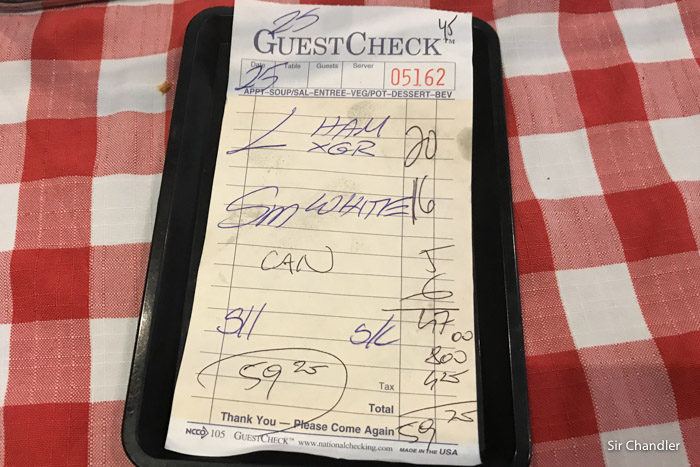 25
45
GUESTCHECK™
Date Table Guests Server
25
05162
APPT-SOUP/SAL-ENTREE-VEG/POT-DESSERT-BEV
L HAM
XGR 20
Sm WHITE 16
CAN 5
6
47 00
800
425
59 25
Tax
Total
59 25
Thank You — Please Come Again
NCCO 105 GUESTCHECK™ www.nationalchecking.com MADE IN THE USA
Sir Chandler